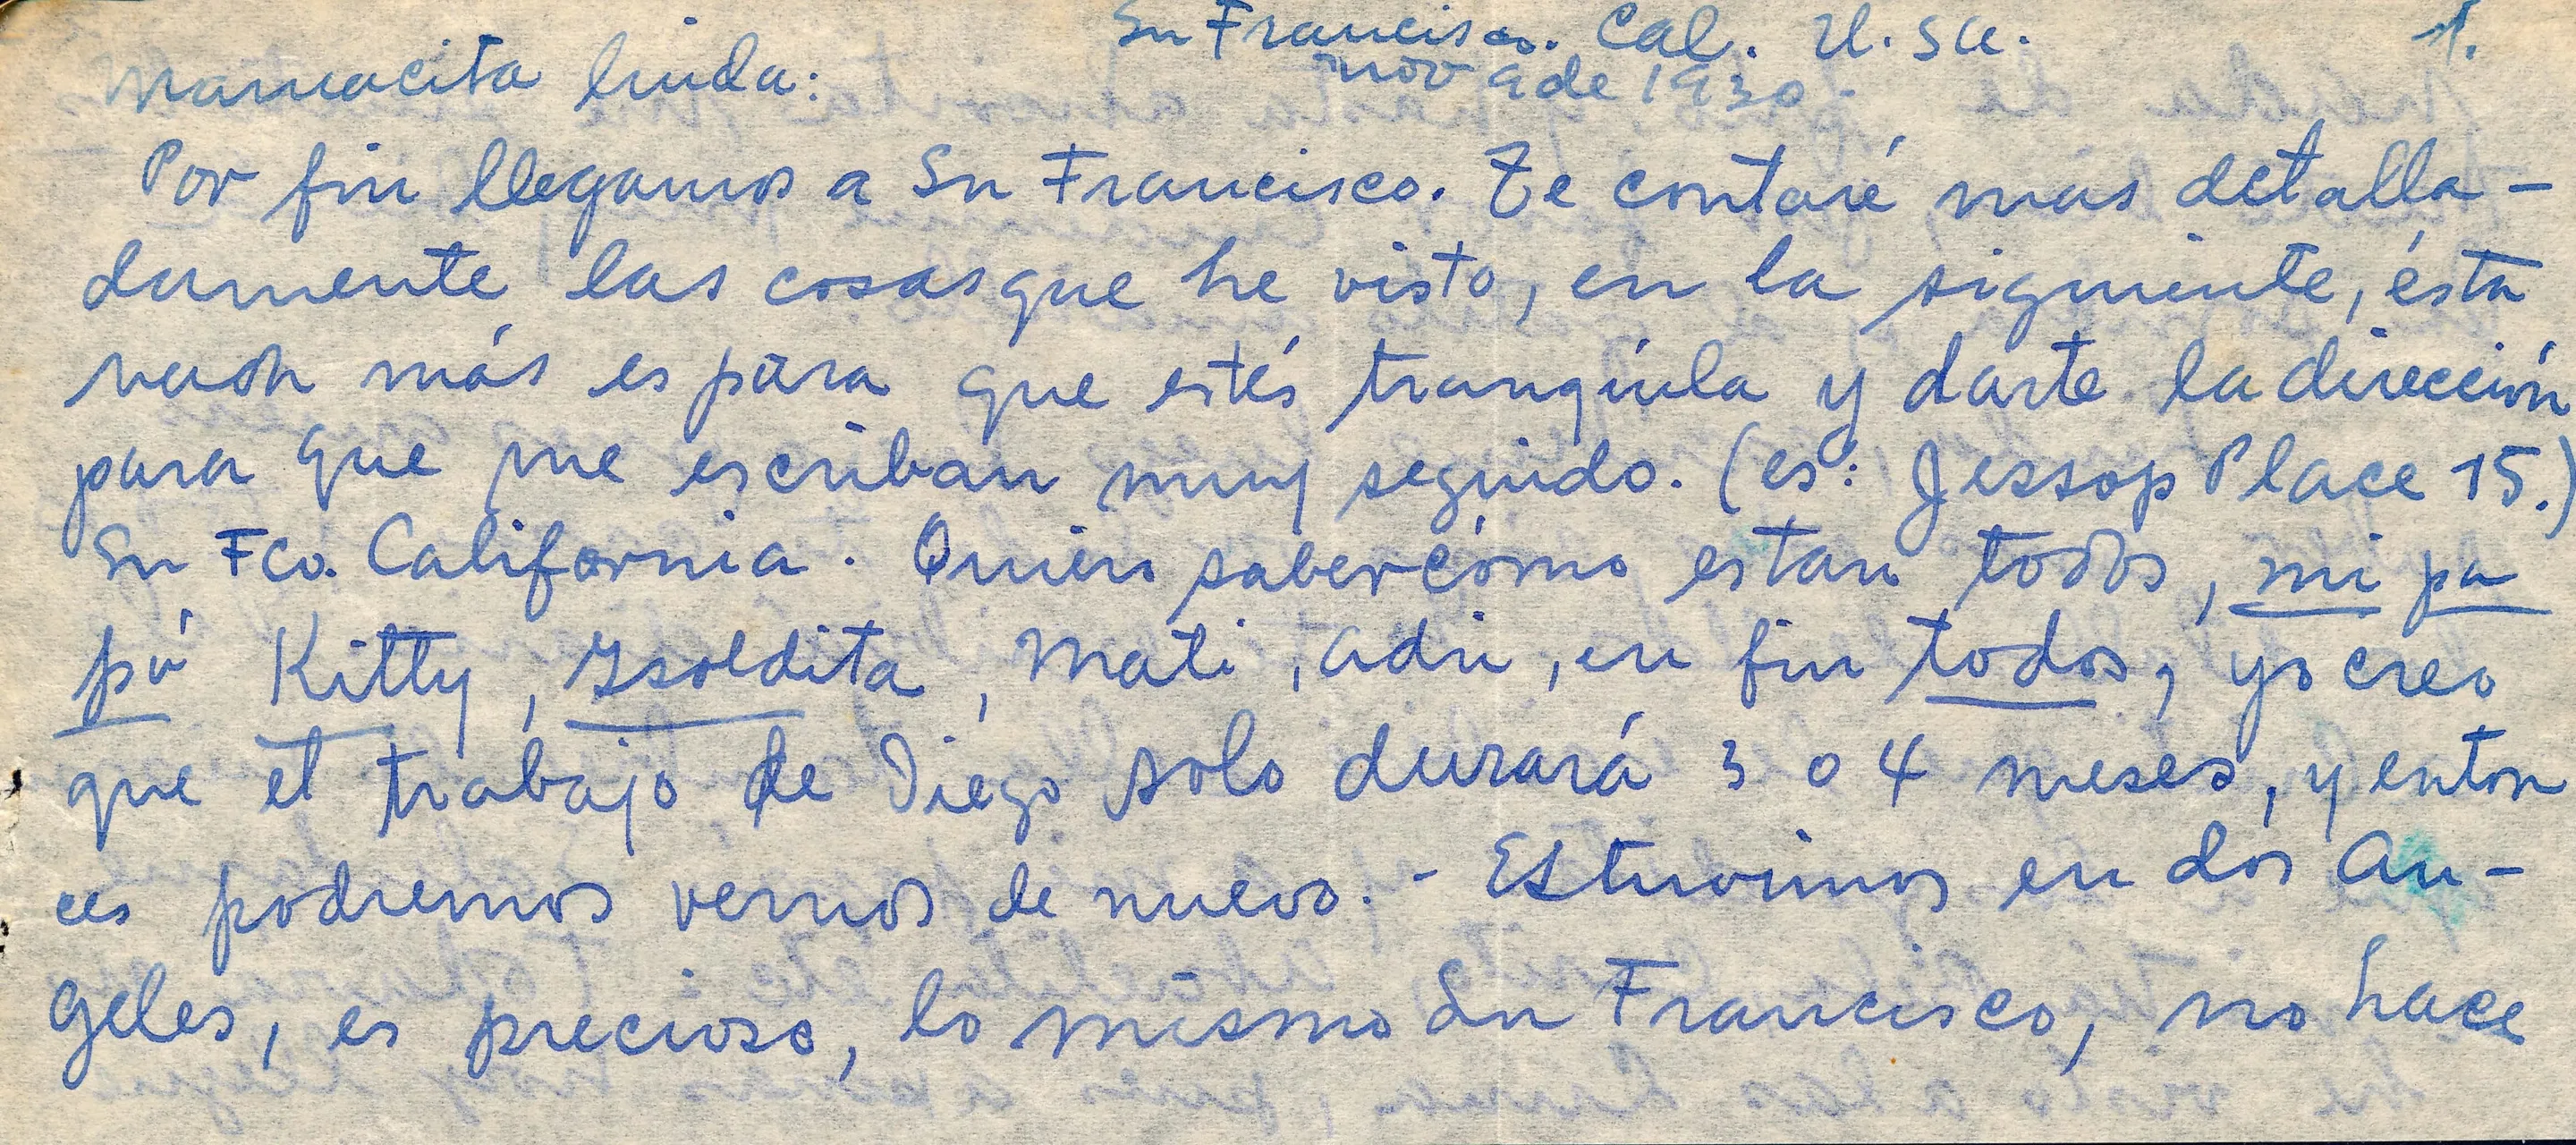 Sn Francisco. Cal. U.SA. 1.
nov 9 de 1930.
Mamacita linda:
Por fin llegamos a Sn Francisco. Te contaré mas detalla-
damente las cosas que he visto, en la siguiente, ésta
más es para que estés tranquila y darte la dirección
para que me escriban muy seguido. (es: Jessop Place 15.)
Sn Fco. California. Quien saber cómo estan todos, mi pa
pá Kitty, Isoldita, Mati, Adri, en fin todos, yo creo
que el trabajo de Diego solo durará 3 o 4 meses, y enton
ces podremos vernos de nuevo.- Estuvimos en Los An-
geles, es precioso, lo mismo Sn Francisco, no hace